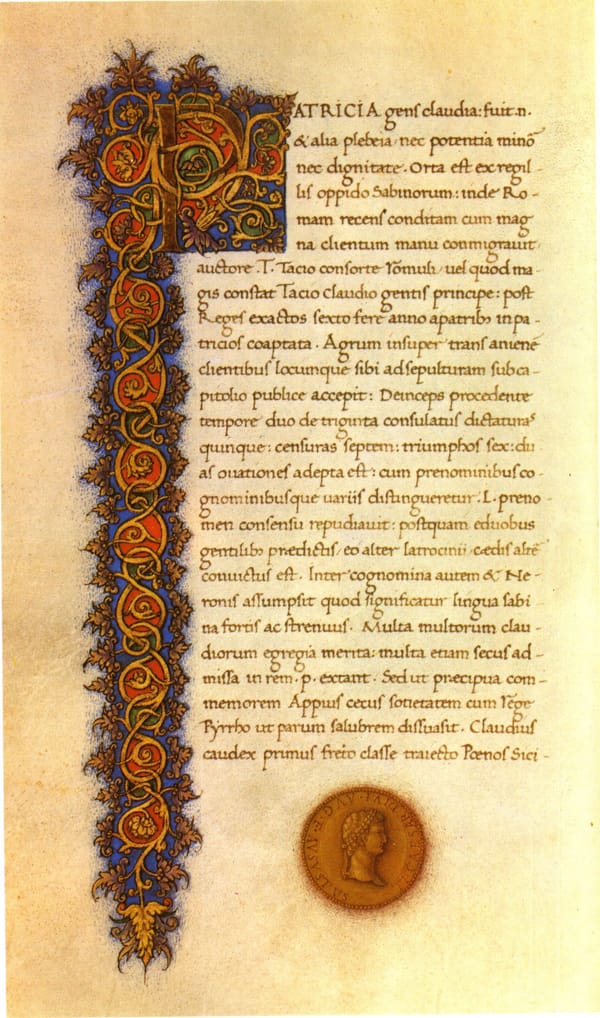 PATRICIA gens claudia: fuit .n.
& alia plebeia nec potentia minõ
nec dignitate. Orta est ex regil-
lis oppido Sabinorum: inde Ro-
mam recens conditam cum mag
na clientum manu conmigrauit
auctore .T. Tacio consorte romuli, uel quod ma-
gis constat Tacio Claudio gentis principe: post
Reges exactos sexto fere anno apatribꝫ in pa-
tricios coaptata. Agrum insuper trans anienẽ
clientibus locumque sibi ad sepulturam sub ca-
pitolio publice accepit: Deinceps procedente
tempore duo de triginta consulatus dictaturas
quinque: censuras septem: triumphos sex: du-
as ouationes adepta est: cum prenominibus co-
gnominibusque uariis distingueretur. L. preno-
men consensu repudiauit: postquam e duobus
gentilibꝫ prædictis, eo alter latrocinii, cædis altẽ
conuictus est. Inter cognomina autem & Ne-
ronis assumpsit quod significatur lingua sabi-
na fortis ac strenuus. Multa multorum clau-
diorum egregia merita: multa etiam secus ad-
missa in rem .p. extant. Sed ut præcipua com-
memorem Appius cecus sotietatem cum rege
Pyrrho ut parum salubrem dissuasit. Claudius
caudex primus freto classe traiecto Pœnos Sici-